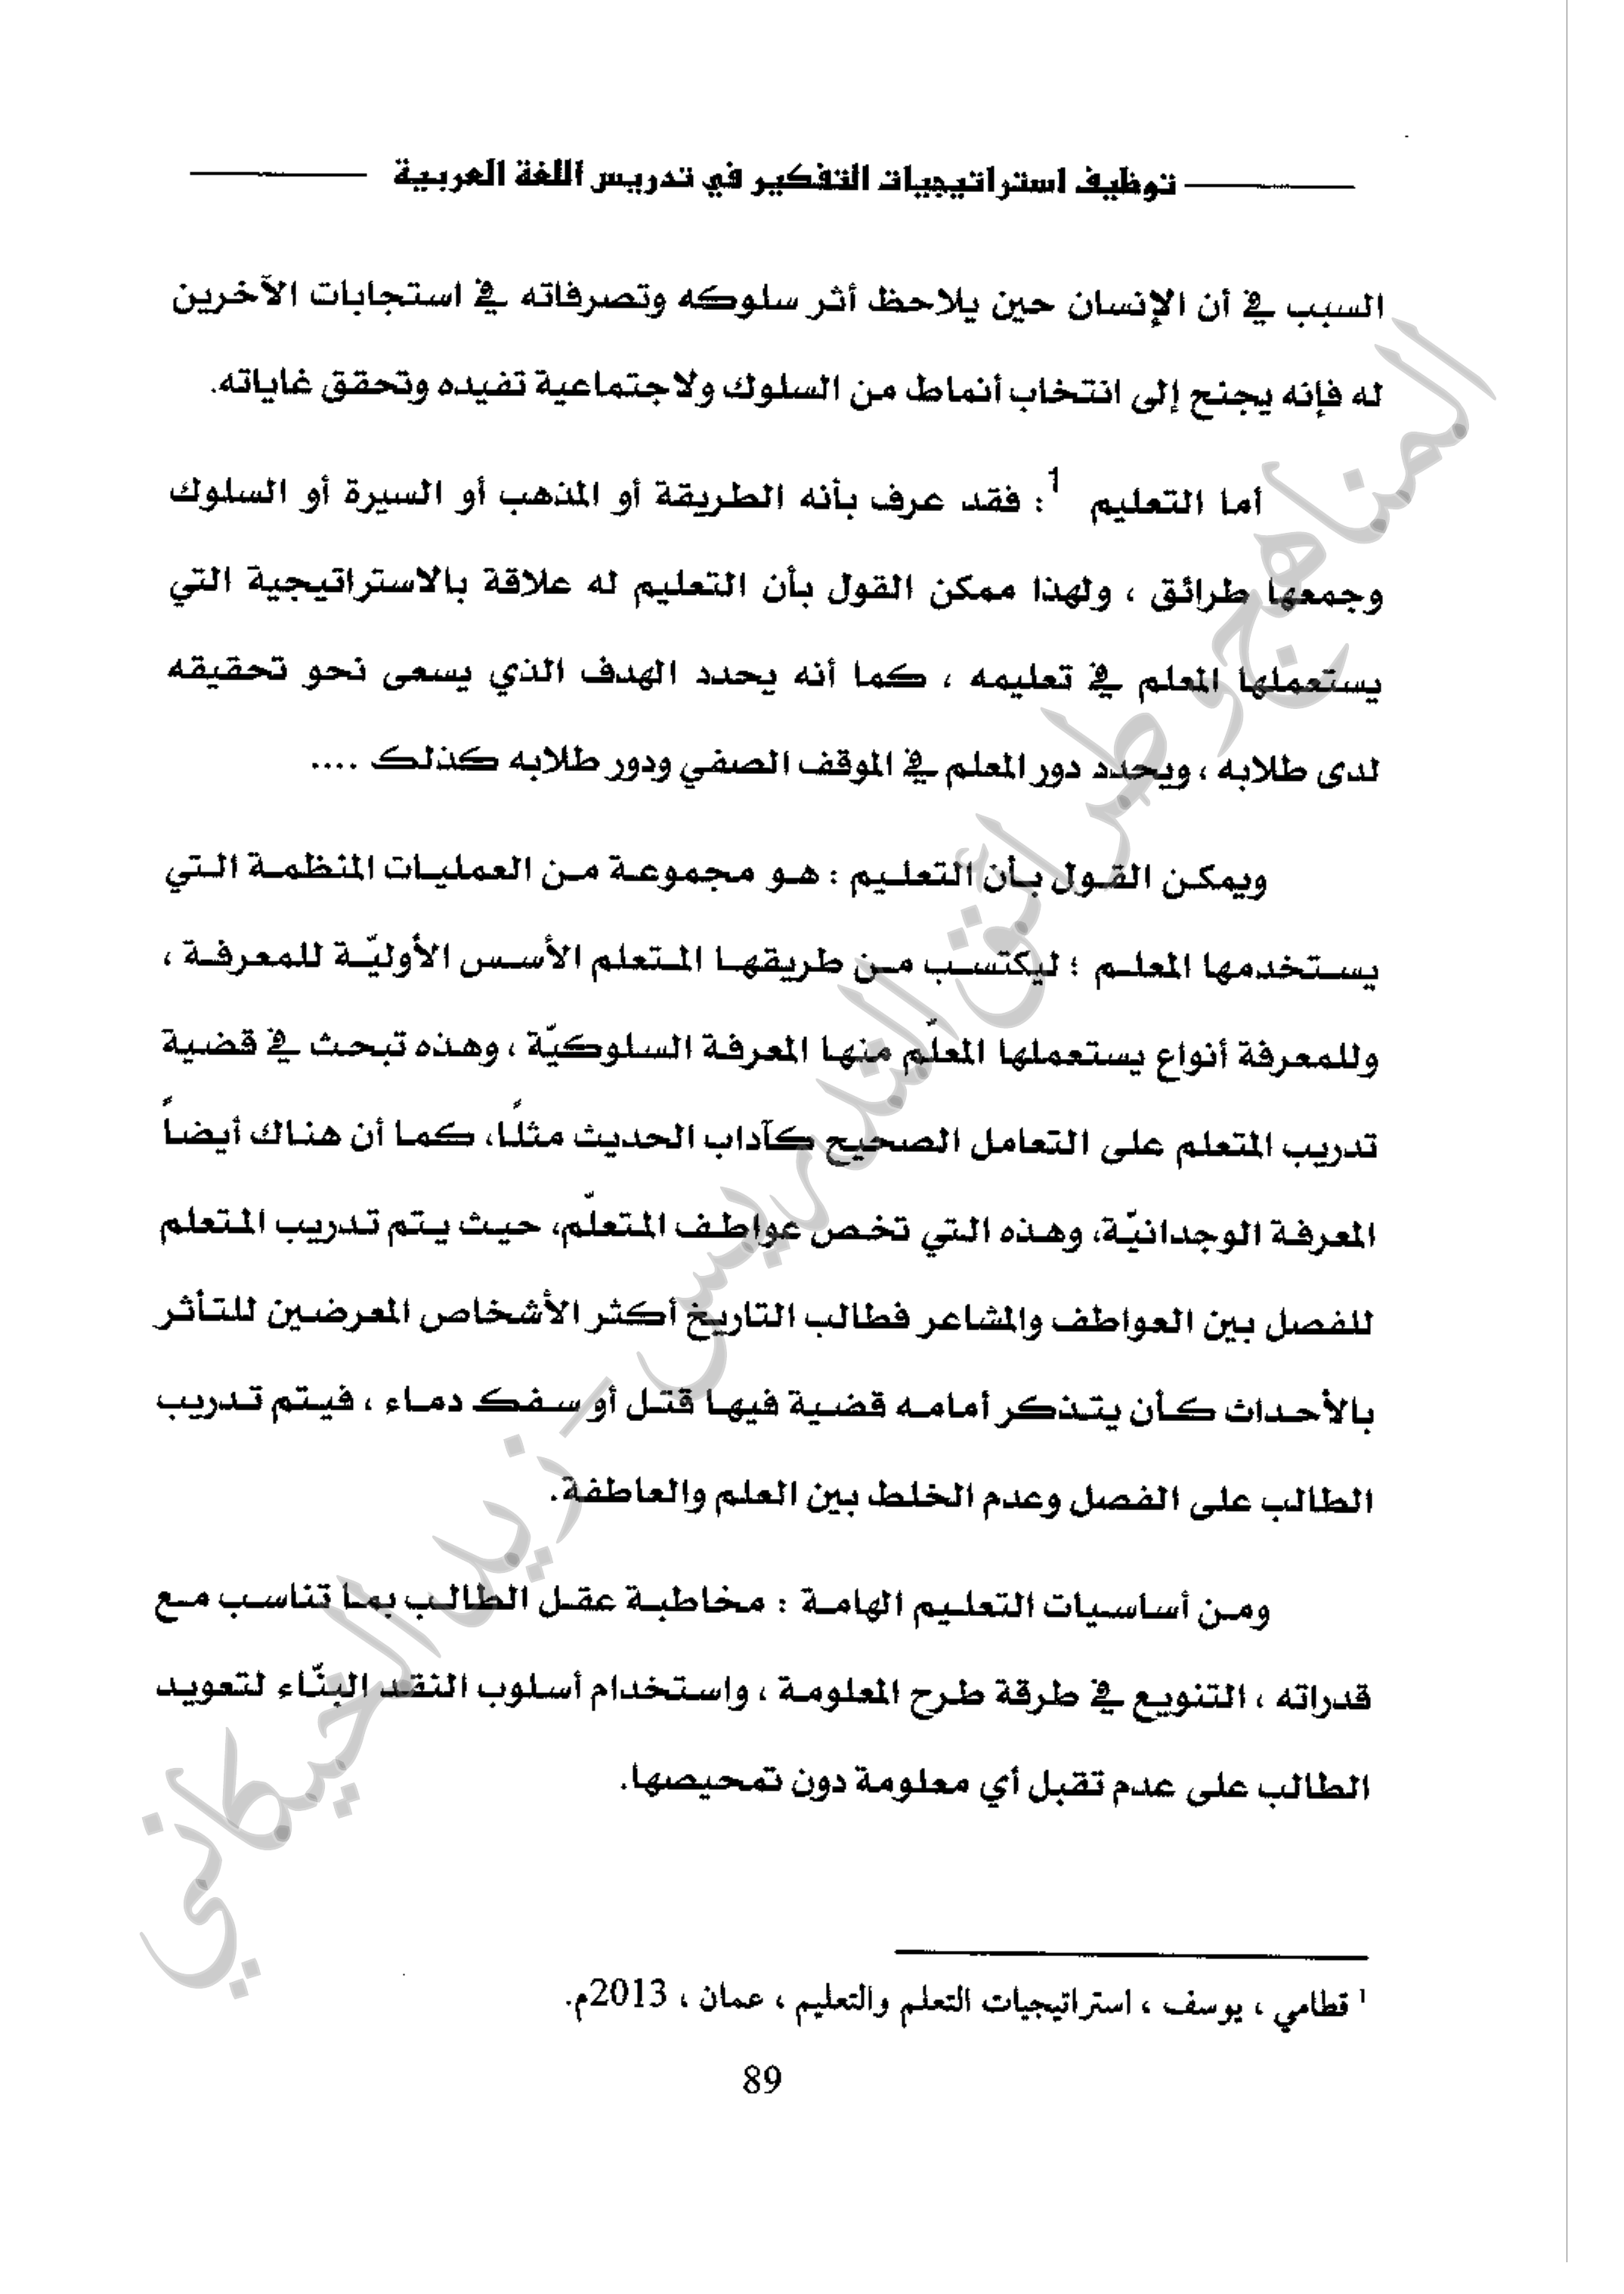 توظيف استراتيجيات التفكير في تدريس اللغة العربية
السبب في أن الإنسان حين يلاحظ أثر سلوكه وتصرفاته في استجابات الآخرين
له فإنه يجنح إلى انتخاب أنماط من السلوك ولاجتماعية تفيده وتحقق غاياته.
أما التعليم 1: فقد عرف بأنه الطريقة أو المذهب أو السيرة أو السلوك
وجمعها طرائق ، ولهذا ممكن القول بأن التعليم له علاقة بالاستراتيجية التي
يستعملها المعلم في تعليمه ، كما أنه يحدد الهدف الذي يسعى نحو تحقيقه
لدى طلابه ، ويحدد دور المعلم في الموقف الصفي ودور طلابه كذلك ....
ويمكن القول بأن التعليم : هو مجموعة من العمليات المنظمة التي
يستخدمها المعلم ؛ ليكتسب من طريقها المتعلم الأسس الأوليّة للمعرفة ،
وللمعرفة أنواع يستعملها المعلّم منها المعرفة السلوكيّة ، وهذه تبحث في قضية
تدريب المتعلم على التعامل الصحيح كآداب الحديث مثلًا، كما أن هناك أيضاً
المعرفة الوجدانيّة، وهذه التي تخص عواطف المتعلّم، حيث يتم تدريب المتعلم
للفصل بين العواطف والمشاعر فطالب التاريخ أكثر الأشخاص المعرضين للتأثر
بالأحداث كأن يتذكر أمامه قضية فيها قتل أو سفك دماء ، فيتم تدريب
الطالب على الفصل وعدم الخلط بين العلم والعاطفة.
ومن أساسيات التعليم الهامة : مخاطبة عقل الطالب بما تناسب مع
قدراته ، التنويع في طرقة طرح المعلومة ، واستخدام أسلوب النقد البنّاء لتعويد
الطالب على عدم تقبل أي معلومة دون تمحيصها.
1 قطامي ، يوسف ، استراتيجيات التعلم والتعليم ، عمان ، 2013م.
89
المناهج وطرائق التدريس - زيد الخيكاني